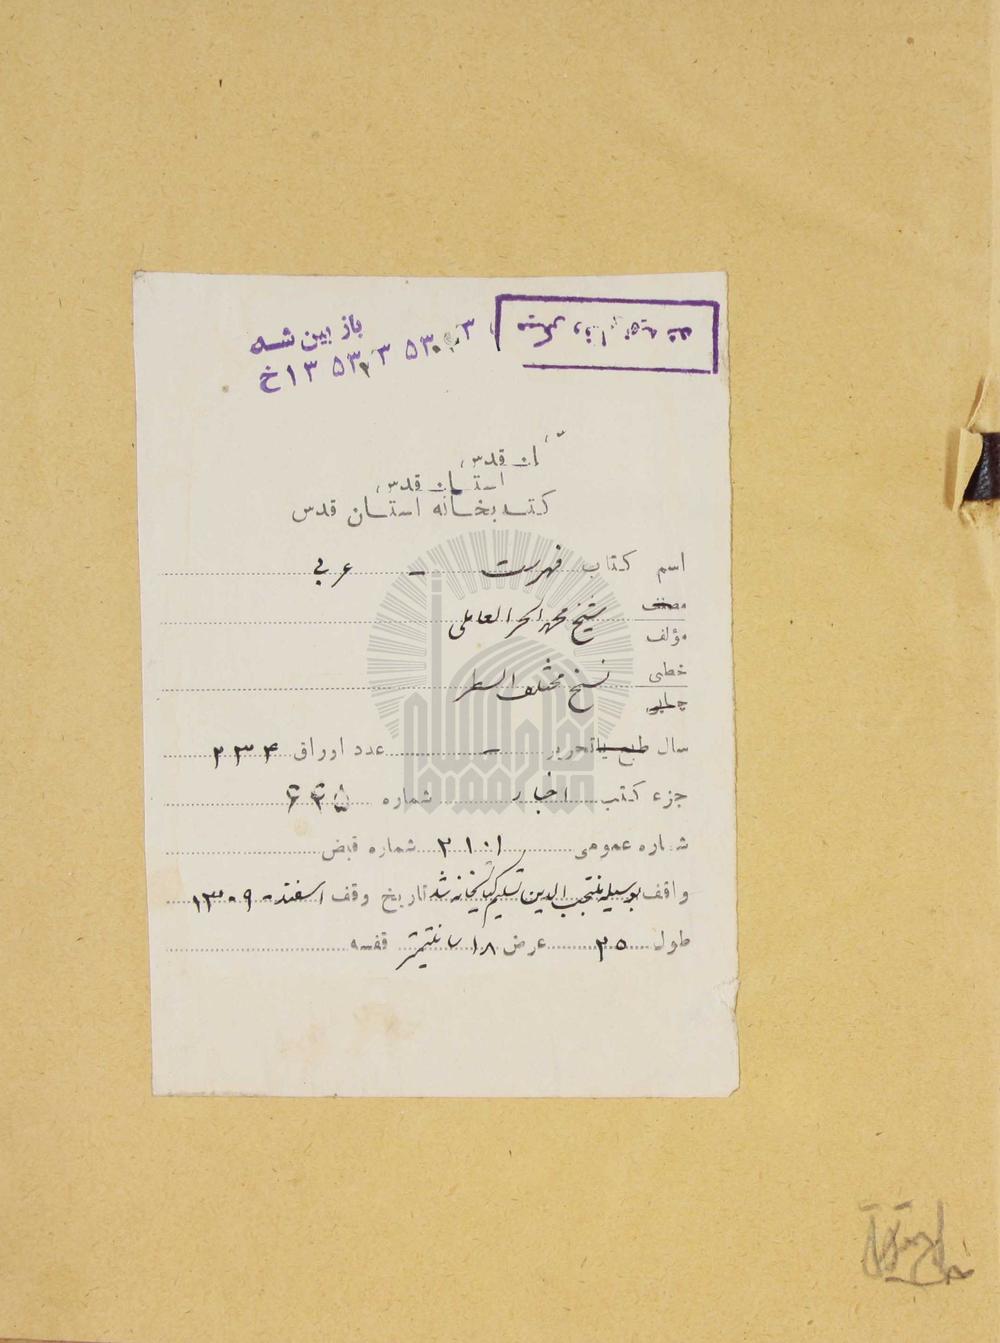 باز بین شه
۱۳۵۳ خ
ان قدس
استان قدس
کتابخانه استان قدس
اسم کتاب فهرست - عربی
مصنف
مؤلف شیخ محمد الحر العاملی
خطی نسخ مختلف السطر
چاپی
سال طبع یا تحریر - عدد اوراق ۲۳۴
جزء کتب اخبار شماره ۶۴۵
شماره عمومی ۲۱۰۱ شماره قبض
واقف بوسیله منتجب الدین تسلیم کتابخانه شد تاریخ وقف اسفند ۱۳۰۹
طول ۲۵ عرض ۱۸ سانتیمتر قفسه